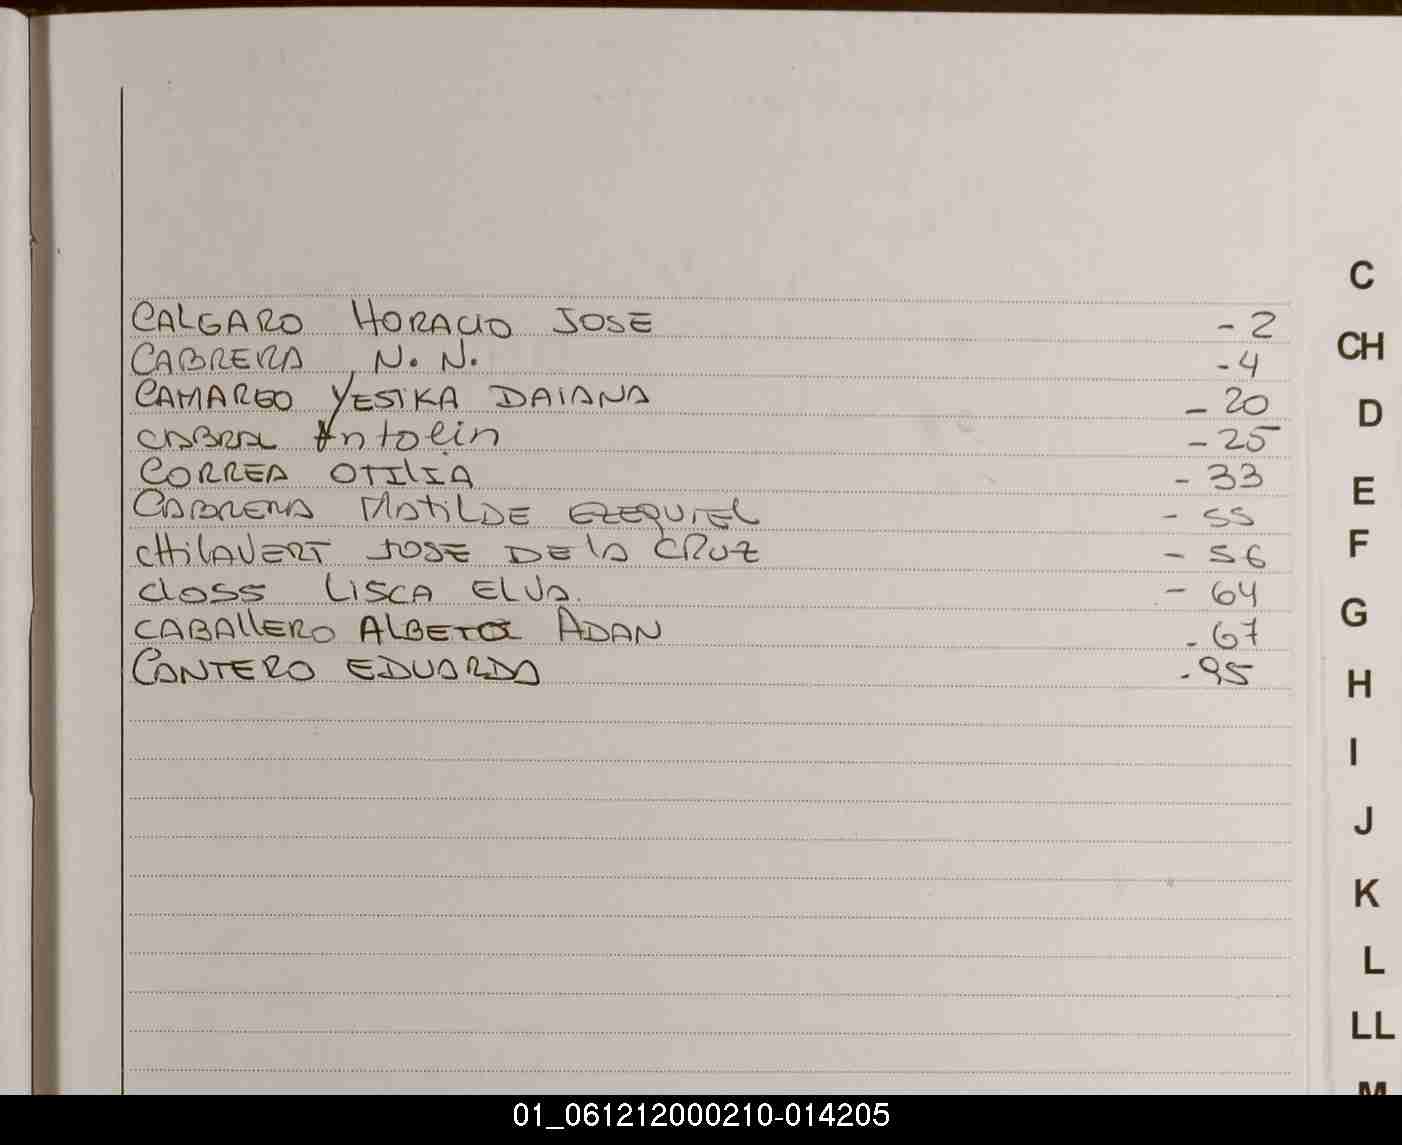 CALGARO HORACIO JOSE - 2
CABRERA, N. N. - 4
CAMARGO YESIKA DAIANA - 20
CABRAL Antolin - 25
CORREA OTILIA - 33
CABRERA MATILDE EZEQUIEL - 55
CHILAVERT JOSE DE LA CRUZ - 56
CLOSS LISCA ELVA. - 64
CABALLERO ADAN - 67
CANTERO EDUARDA - 95
C
CH
D
E
F
G
H
I
J
K
L
LL
M
01_061212000210-014205